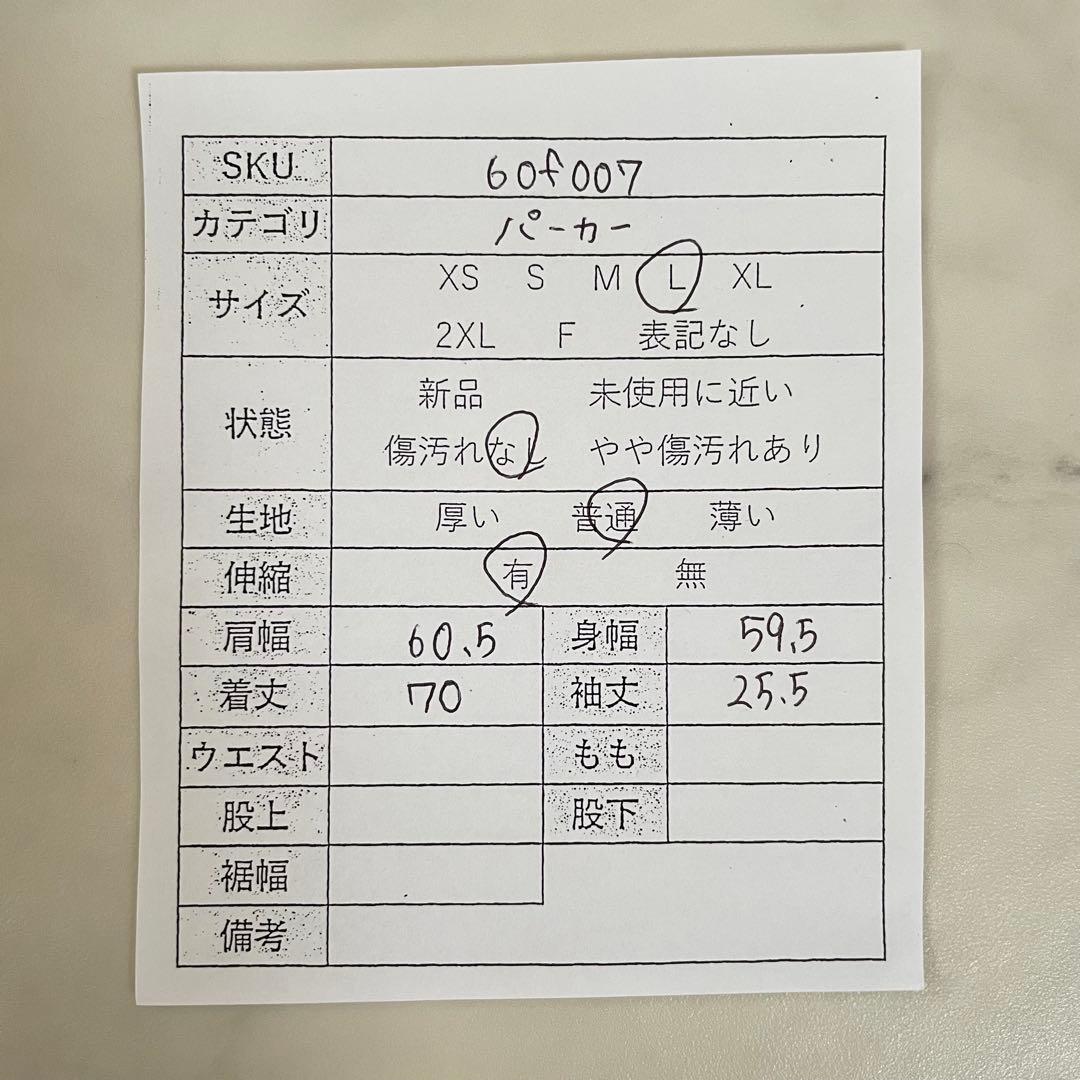 SKU 60f007
カテゴリ パーカー
サイズ XS S M L XL
2XL F 表記なし
状態 新品 未使用に近い
傷汚れなし やや傷汚れあり
生地 厚い 普通 薄い
伸縮 有 無
肩幅 60.5 身幅 59.5
着丈 70 袖丈 25.5
ウエスト もも
股上 股下
裾幅
備考